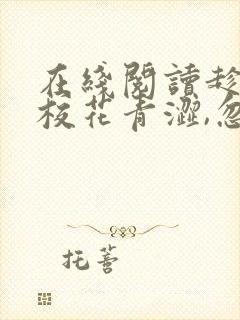 在綫閱讀趁
校花青澀,忽
托薈